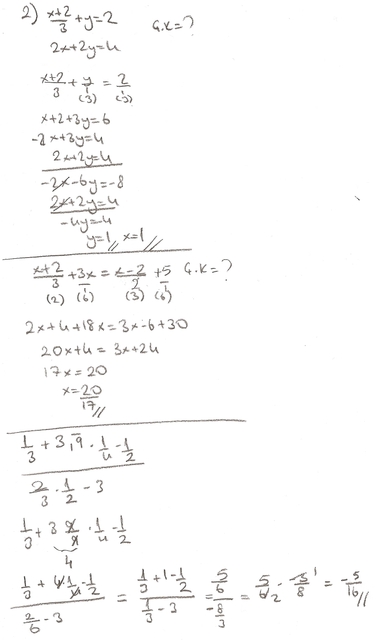 2) x+2/3 + y = 2 Ç.K = ?
2x+2y=4
x+2/3 + y/1 = 2/1
(3) (3)
x+2+3y=6
-2 x+3y=4
2x+2y=4
-2x-6y=-8
2x+2y=4
-4y=-4
y=1,, x=1,,
x+2/3 + 3x/1 = x-2/2 + 5/1 Ç.K=?
(2) (6) (3) (6)
2x+4+18x=3x-6+30
20x+4=3x+24
17x=20
x=20/17,,
1/3 + 3,9̅ . 1/4 - 1/2
2/3 . 1/2 - 3
1/3 + 3 9/9 . 1/4 - 1/2
4
1/3 + 4 . 1/4 - 1/2 / 2/6 - 3 = 1/3 + 1 - 1/2 / 1/3 - 3 = 5/6 / -8/3 = 5/6 2 . -3/8 1 = -5/16,,